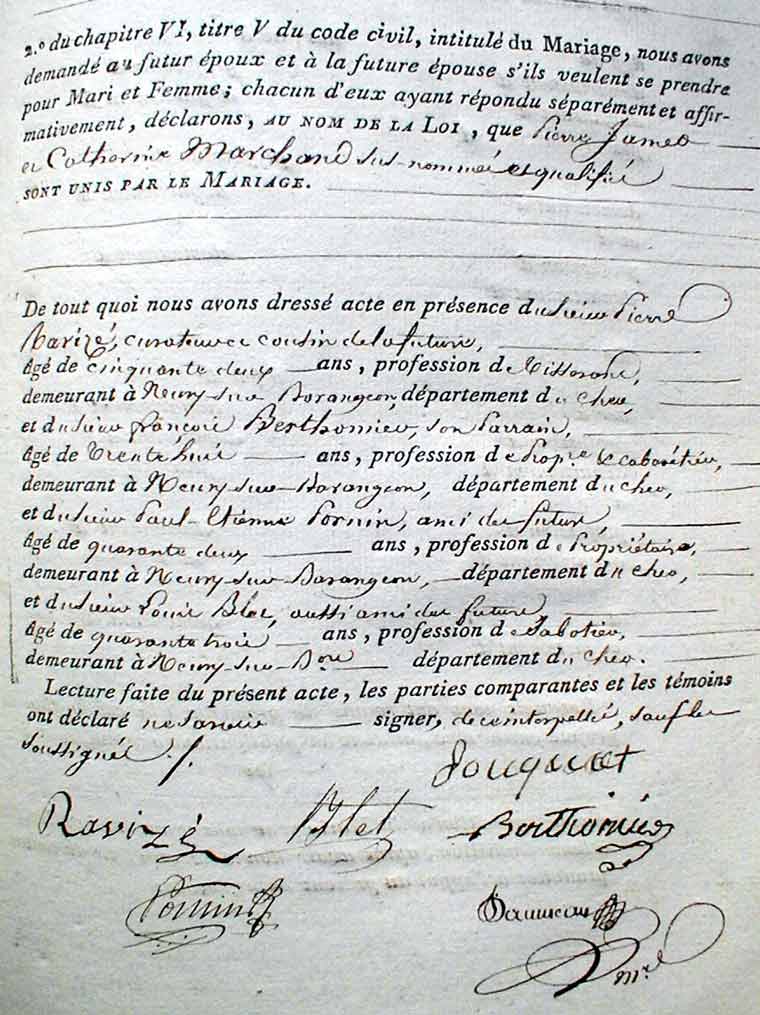 2.º du chapitre VI, titre V du code civil, intitulé du Mariage, nous avons
demandé au futur époux et à la future épouse s'ils veulent se prendre
pour Mari et Femme; chacun d'eux ayant répondu séparément et affir-
mativement, déclarons, AU NOM DE LA LOI, que Pierre Jamet
et Catherine Marchand sus-nommés et qualifiés
SONT UNIS PAR LE MARIAGE.
De tout quoi nous avons dressé acte en présence du sieur Pierre
Ravizé, curateur et cousin de la future,
âgé de cinquante deux ans, profession de Tisserand,
demeurant à Neuvy-sur-Barangeon, département du Cher,
et du sieur françois Berthomier, son Parrain,
âgé de trente huit ans, profession de Prop.re & cabarétier,
demeurant à Neuvy-sur-Barangeon, département du cher,
et du sieur Paul-Etienne Pornin, ami des futurs,
âgé de quarante deux ans, profession de Propriétaire,
demeurant à Neuvy-sur-Barangeon, département du Cher,
et du sieur Louis Blet, aussi ami des futurs,
âgé de quarante trois ans, profession de Sabotier,
demeurant à Neuvy-sur-Bon département du Cher.
Lecture faite du présent acte, les parties comparantes et les témoins
ont déclaré ne savoir signer, de ce interpellés, sauf les
soussignés ./.
Ravizé Blet Berthomier
Pornin
mre